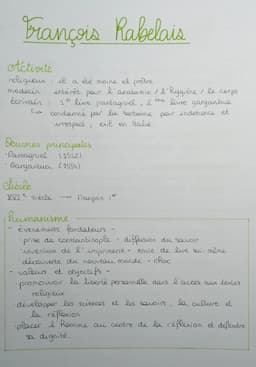 François Rabelais
Activité
religieux : il a été moine et prêtre
médecin : intérêt pour l'anatomie / l'hygiène / le corps
écrivain : 1er livre pantagruel, 2ème livre gargantua
↳ condamné par la Sorbonne pour indécence et
irrespect, exil en Italie
Oeuvres principales
- Pantagruel (1532)
- Gargantua (1534)
siècle
XVIe siècle → François 1er
humanisme
- évènements fondateurs -
- prise de constantinople - diffusion du savoir
- invention de l'imprimerie - envie de lire soi-même
- découverte du nouveau monde - choc
- valeurs et objectifs -
- promouvoir la liberté personnelle dans l'accès aux textes
religieux
- développer les sciences et les savoirs, la culture et
la réflexion
- placer l'Homme au centre de la réflexion et défendre
sa dignité.